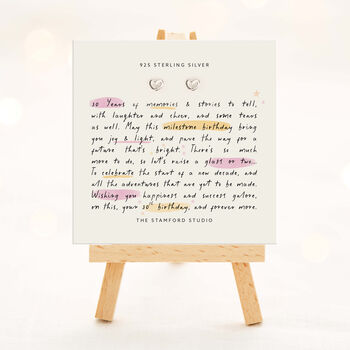 925 STERLING SILVER
30 Years of memories & stories to tell,
with laughter and cheer, and some tears
as well. May this milestone birthday bring
you joy & light, and pave the way for a
future that's bright. There's so much
more to do, so let's raise a glass or two.
To celebrate the start of a new decade, and
all the adventures that are yet to be made.
Wishing you happiness and success galore,
on this, your 30th birthday, and forever more.
THE STAMFORD STUDIO